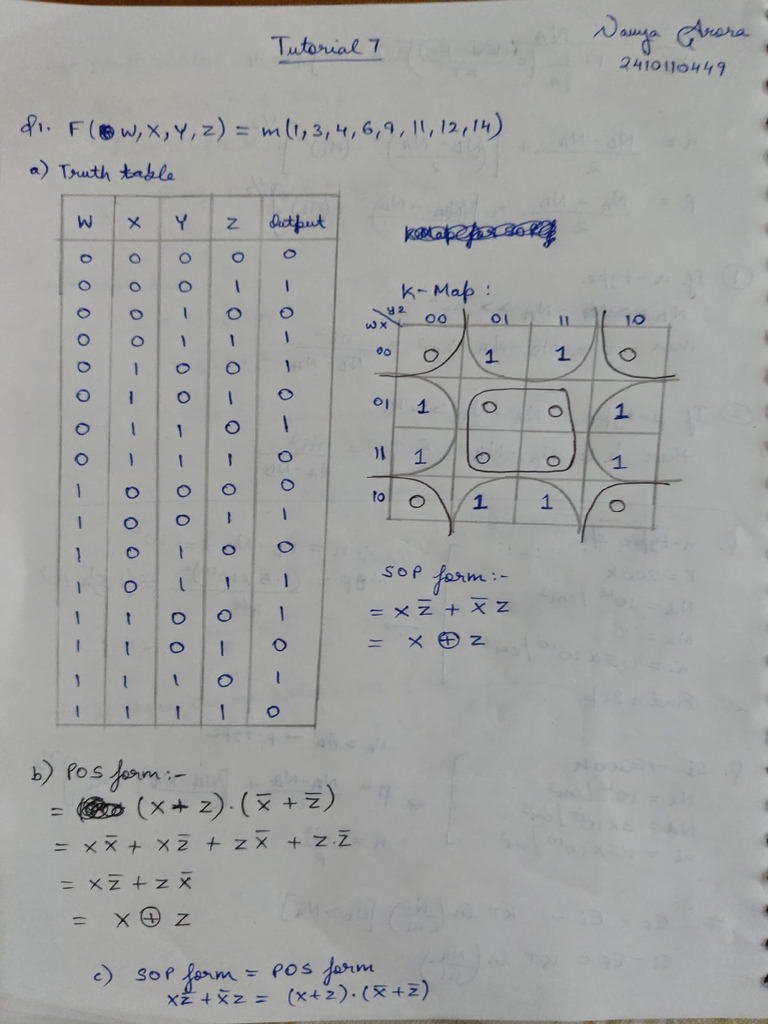 Tutorial 7
Navya Arora
2410110449
Q1. F(W, X, Y, Z) = m(1, 3, 4, 6, 9, 11, 12, 14)
a) Truth table
W X Y Z Output
0 0 0 0 0
0 0 0 1 1
0 0 1 0 0
0 0 1 1 1
0 1 0 0 1
0 1 0 1 0
0 1 1 0 1
0 1 1 1 0
1 0 0 0 0
1 0 0 1 1
1 0 1 0 0
1 0 1 1 1
1 1 0 0 1
1 1 0 1 0
1 1 1 0 1
1 1 1 1 0
K-Map :
WX YZ 00 01 11 10
00 0 1 1 0
01 1 0 0 1
11 1 0 0 1
10 0 1 1 0
SOP form:-
= x z̅ + x̅ z
= x ⊕ z
b) POS form:-
= (x + z) . (x̅ + z̅)
= x x̅ + x z̅ + z x̅ + z . z̅
= x z̅ + z x̅
= x ⊕ z
c) SOP form = POS form
x z̅ + x̅ z = (x+z) . (x̅ + z̅)